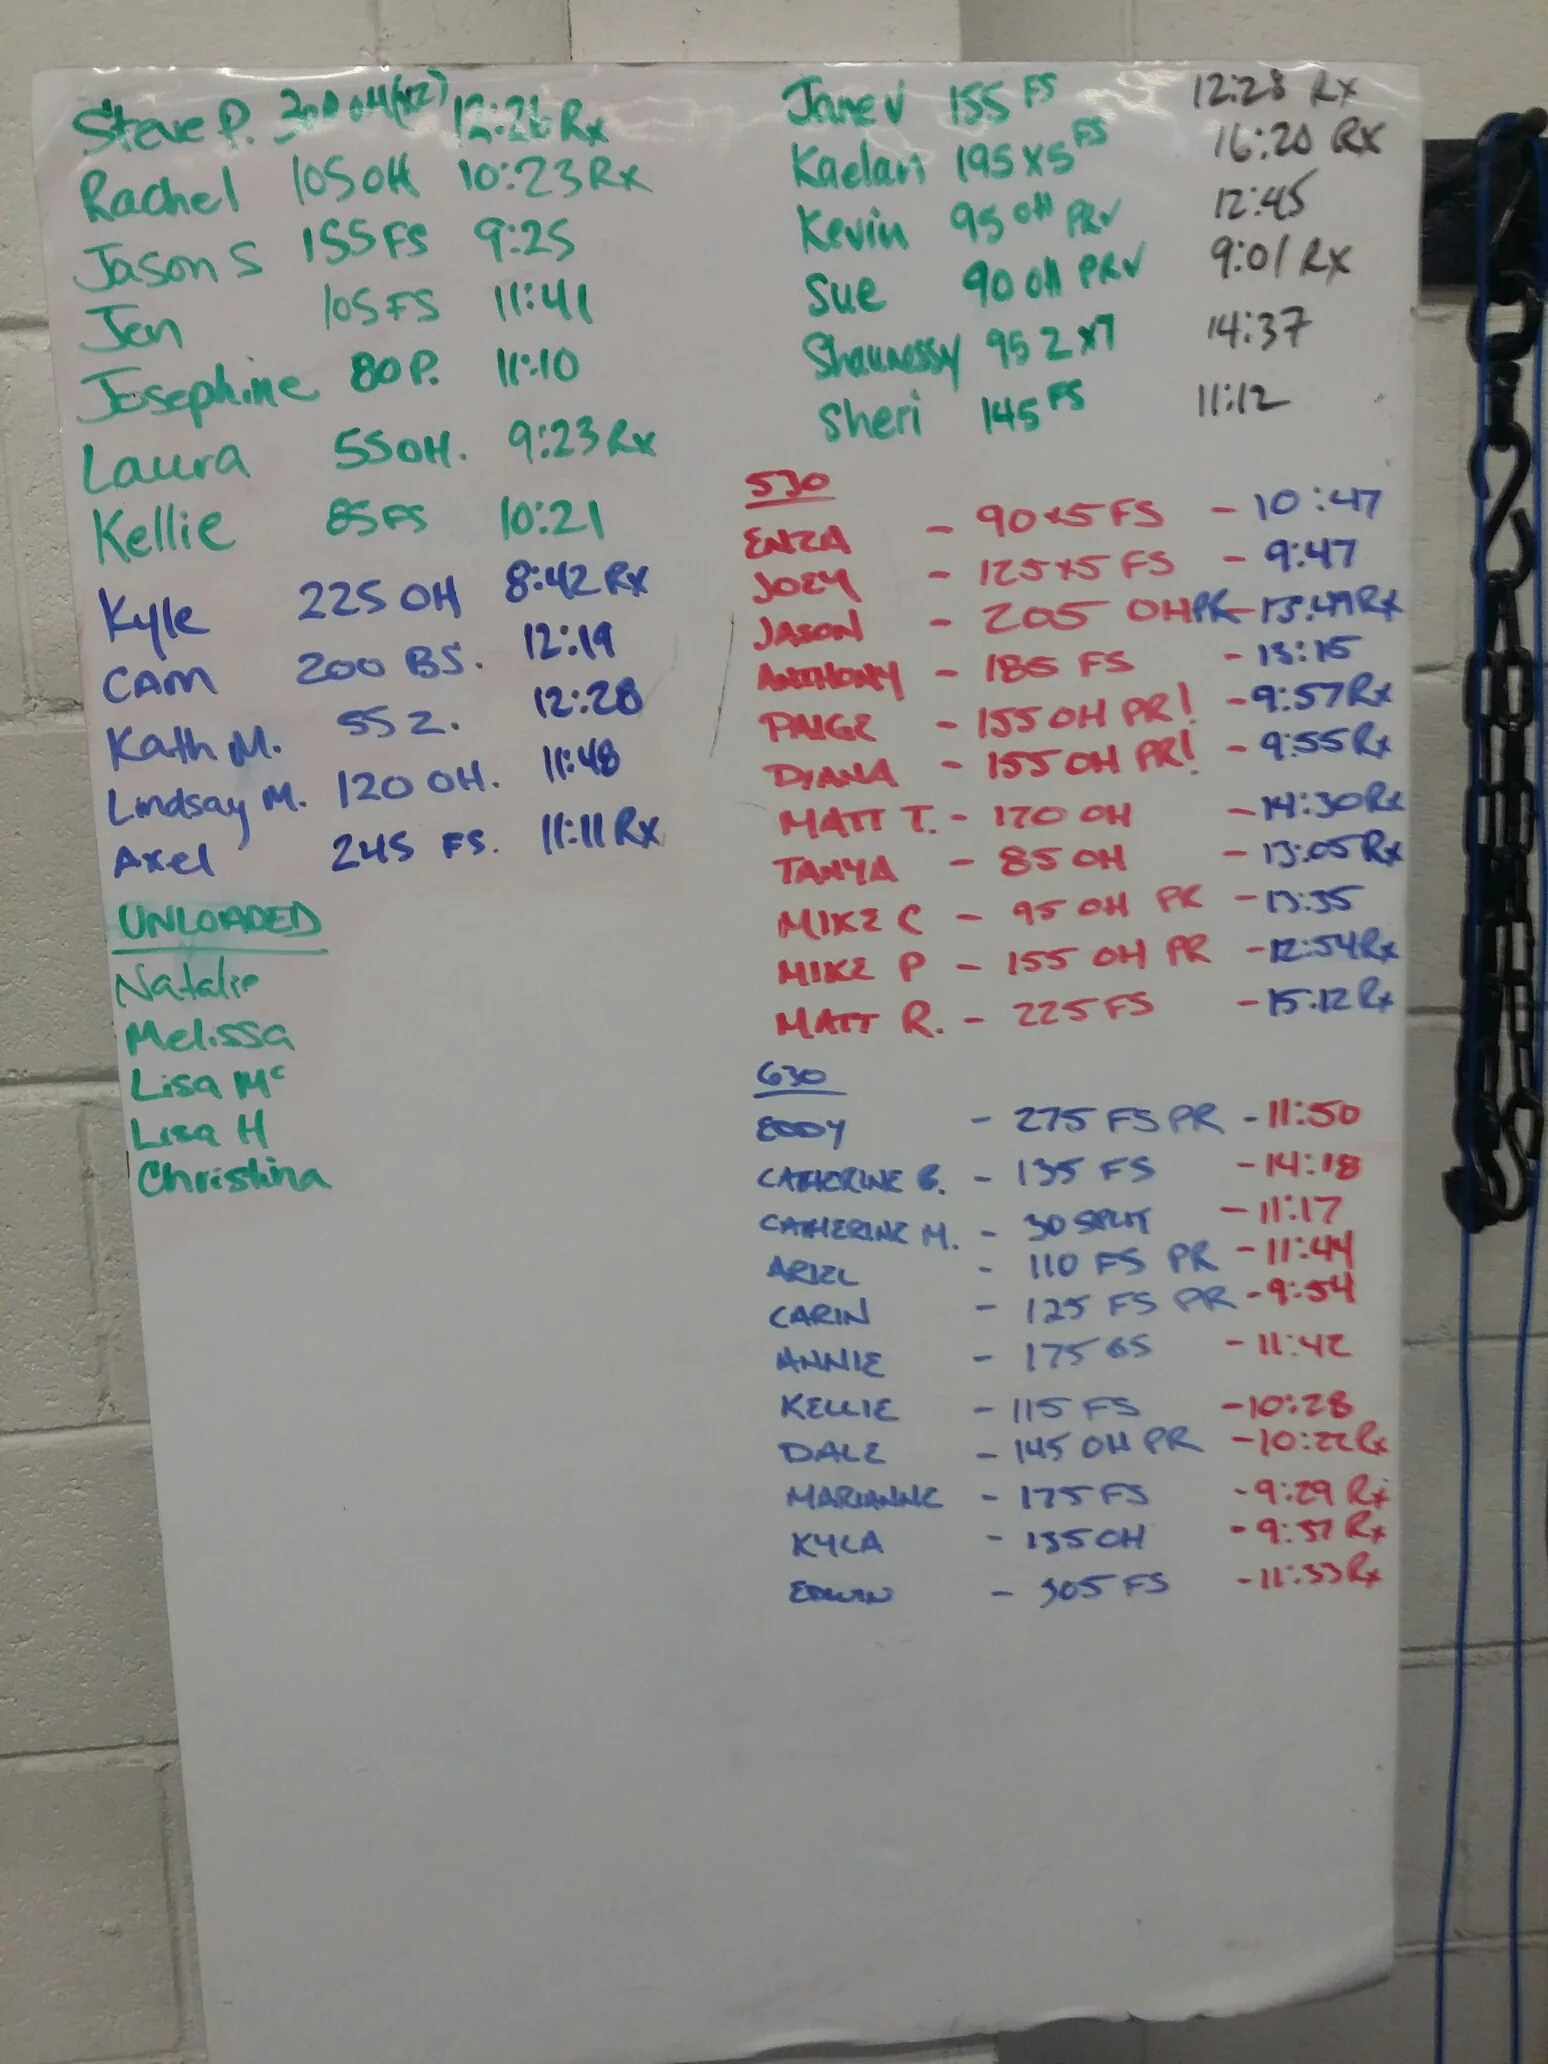 Steve P. 300 OH (x2) 12:26 Rx
Rachel 105 OH 10:23 Rx
Jason S 155 FS 9:25
Jen 105 FS 11:41
Josephine 80 P. 11:10
Laura 55 OH. 9:23 Rx
Kellie 85 FS 10:21
Kyle 225 OH 8:42 Rx
CAM 200 BS. 12:19
Kath M. 55 2. 12:28
Lindsay M. 120 OH. 11:48
Axel 245 FS. 11:11 Rx
UNLOADED
Natalie
Melissa
Lisa Mc
Lisa H
Christina
Jane V 155 FS 12:28 Rx
Kaelan 195 x5 FS 16:20 Rx
Kevin 95 OH PR✓ 12:45
Sue 90 OH PR✓ 9:01 Rx
Shaunessy 95 2 x7 14:37
Sheri 145 FS 11:12
530
ENZA - 90x5 FS - 10:47
JOEY - 125x5 FS - 9:47
JASON - 205 OH PR - 13:49 Rx
ANTHONY - 185 FS - 13:15
PAIGE - 155 OH PR! - 9:57 Rx
DIANA - 155 OH PR! - 9:55 Rx
MATT T. - 170 OH - 14:30 Rx
TANYA - 85 OH - 13:05 Rx
MIKE C - 95 OH PR - 13:35
MIKE P - 155 OH PR - 12:54 Rx
MATT R. - 225 FS - 15:12 Rx
630
EDDY - 275 FS PR - 11:50
CATHERINE B. - 135 FS - 14:18
CATHERINE M. - 30 SPLIT - 11:17
ARIEL - 110 FS PR - 11:44
CARIN - 125 FS PR - 9:54
ANNIE - 175 BS - 11:42
KELLIE - 115 FS - 10:28
DALE - 145 OH PR - 10:22 Rx
MARIANNE - 175 FS - 9:29 Rx
KYLA - 135 OH - 9:57 Rx
EDWIN - 305 FS - 11:33 Rx